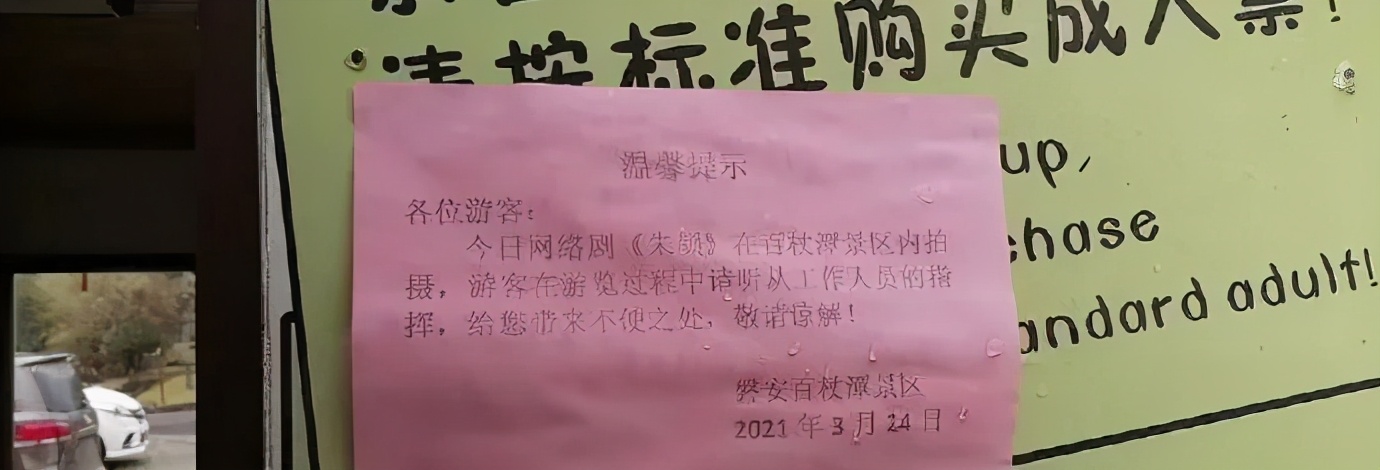 请按标准购买成人票!
温馨提示
各位游客:
今日网络剧《朱颜》在百杖潭景区内拍
摄,游客在游览过程中请听从工作人员的指
挥,给您带来不便之处,敬请谅解!
磐安百杖潭景区
2021年3月24日
up,
chase
andard adult!